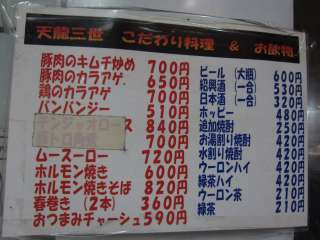 天龍三世 こだわり料理 & お飲物
豚肉のキムチ炒め 700円
豚肉のカラアゲ 650円
鶏のカラアゲ 700円
バンバンジー 510円
チンジャオロース 840円
700円
ムースーロー 720円
ホルモン焼き 600円
ホルモン焼きそば 820円
春巻き (2本) 360円
おつまみチャーシュ 590円
ビール (大瓶) 600円
紹興酒 (一合) 530円
日本酒 (一合) 320円
ホッピー 480円
追加焼酎 250円
お湯割り焼酎 420円
水割り焼酎 420円
ウーロンハイ 420円
緑茶ハイ 420円
ウーロン茶 210円
緑茶 210円